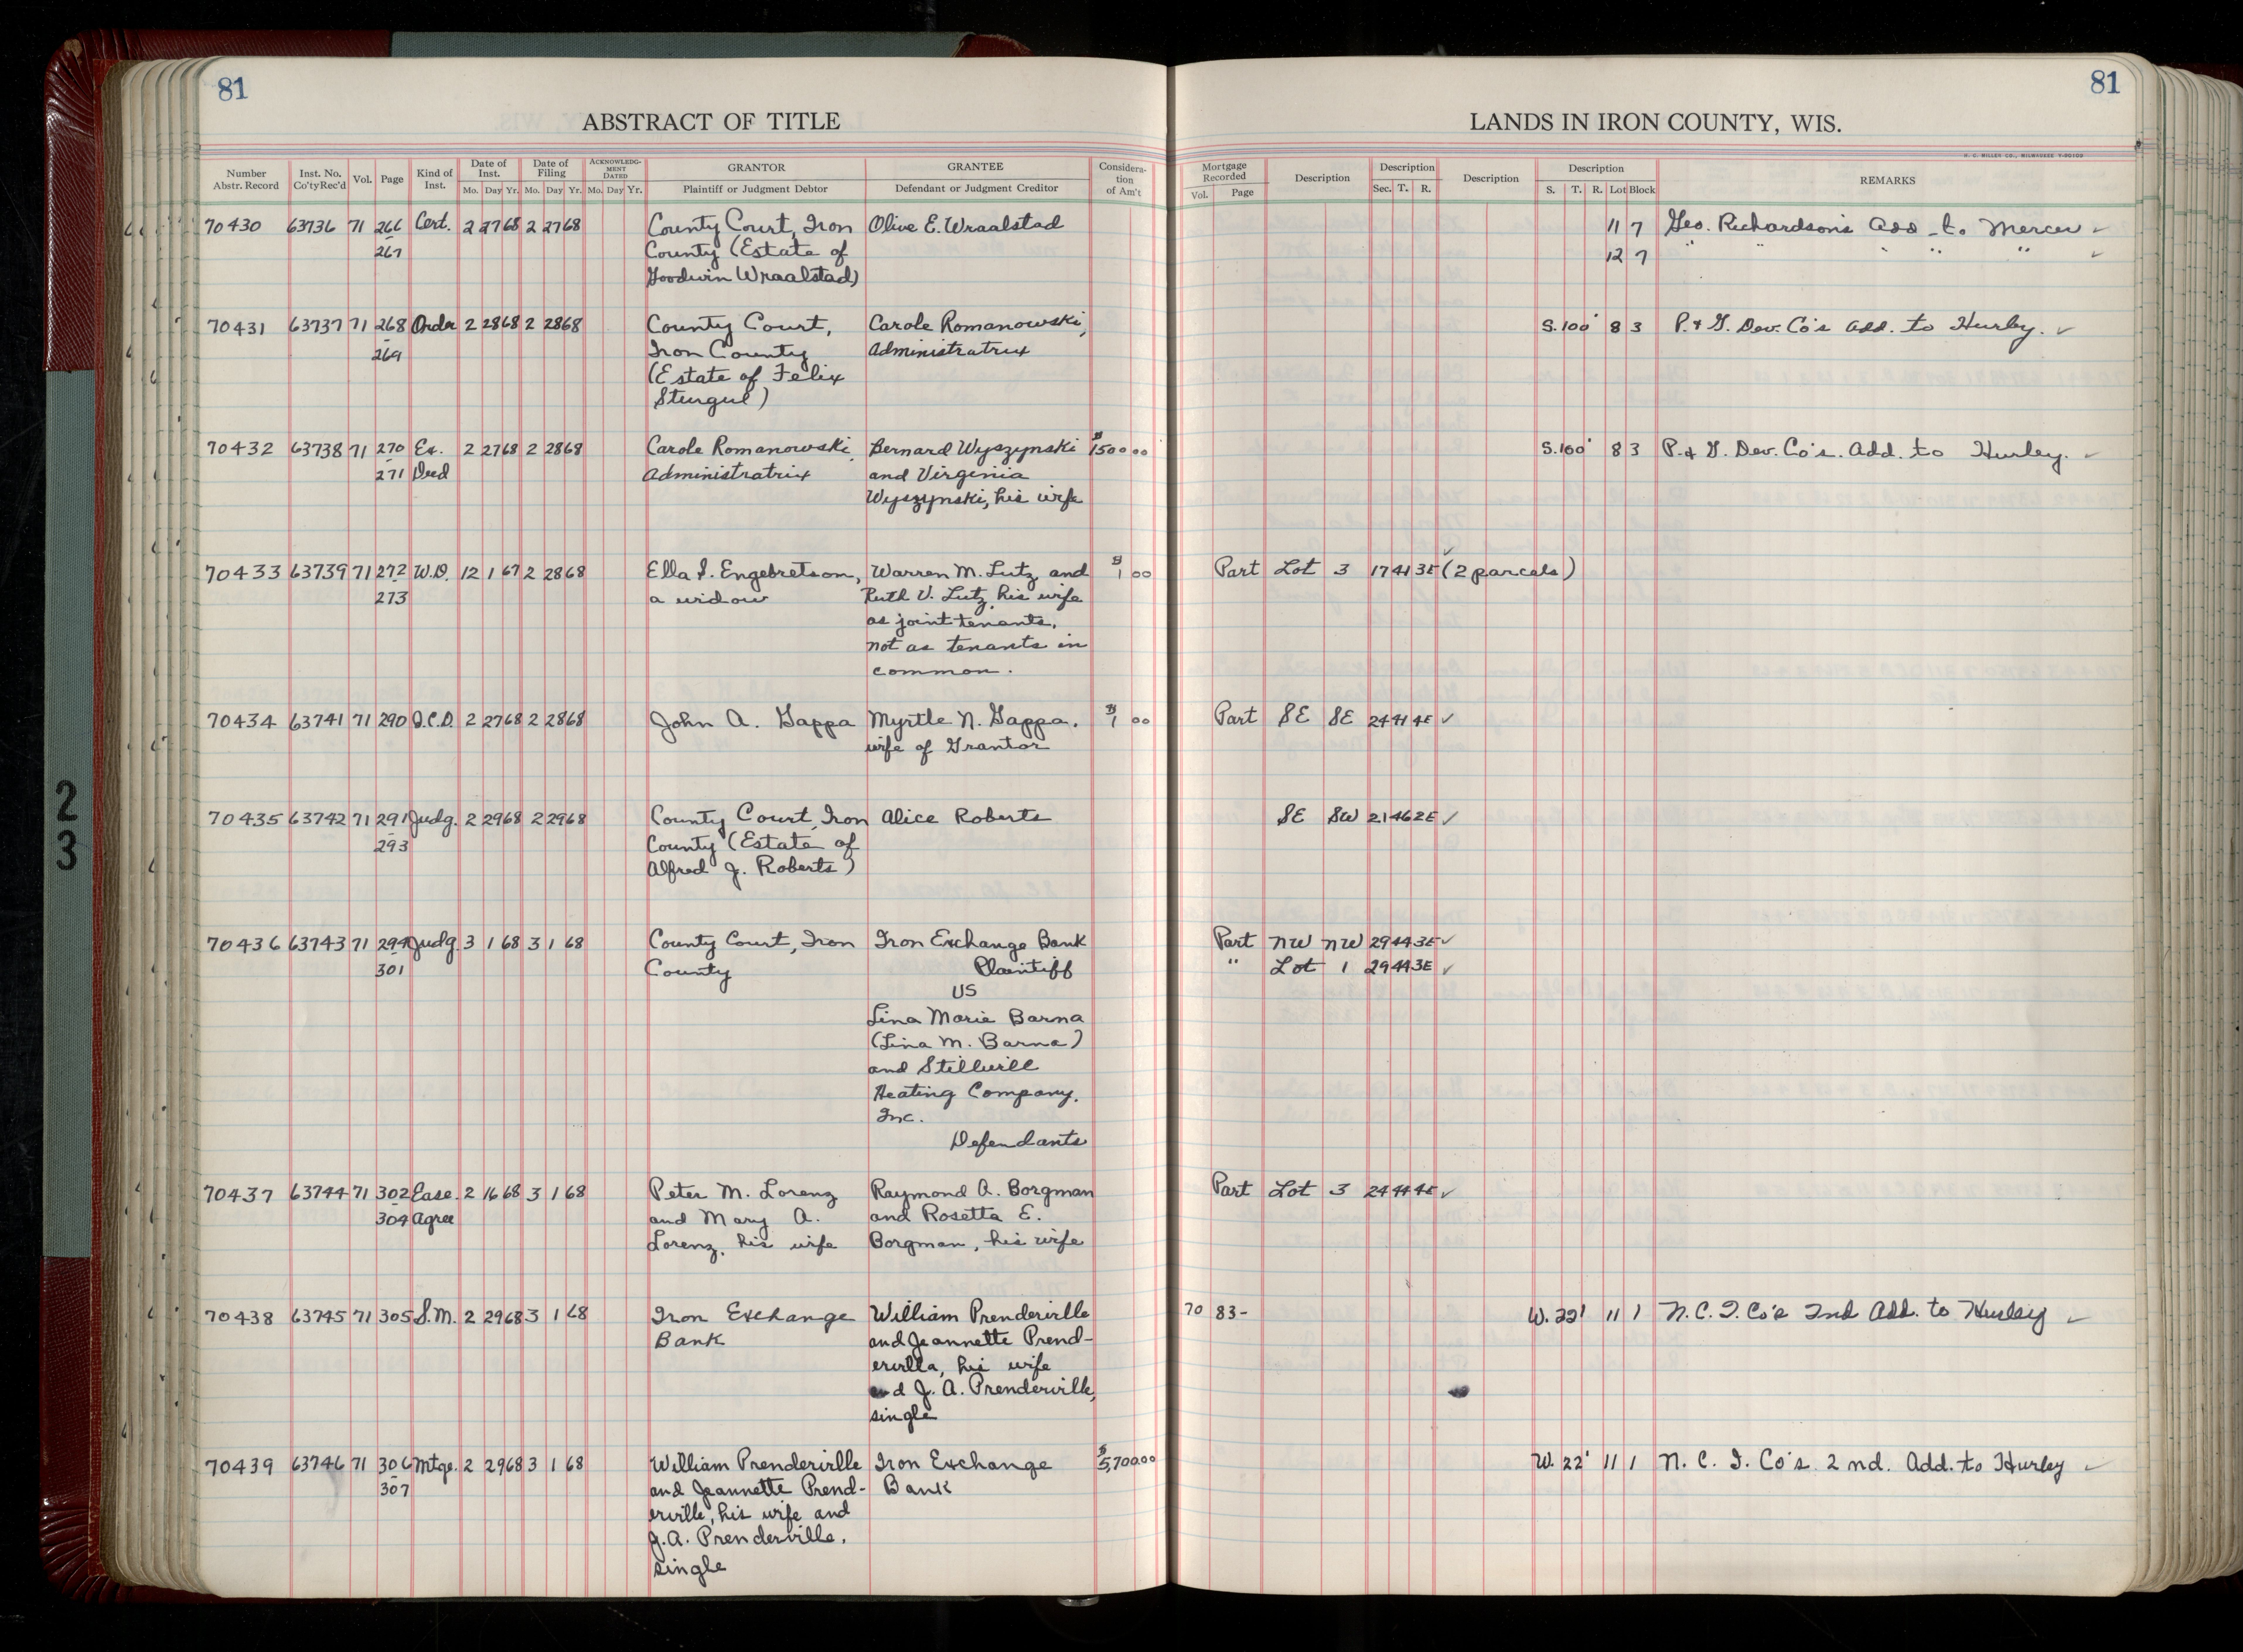 81
ABSTRACT OF TITLE
Number Abstr. Record | Inst. No. Co'ty Rec'd | Vol. | Page | Kind of Inst. | Date of Inst. Mo. Day Yr. | Date of Filing Mo. Day Yr. | ACKNOWLEDGMENT DATED Mo. Day Yr. | GRANTOR Plaintiff or Judgment Debtor | GRANTEE Defendant or Judgment Creditor | Consideration of Am't
81
LANDS IN IRON COUNTY, WIS.
H. C. MILLER CO., MILWAUKEE
Mortgage Recorded Vol. Page | Description | Description Sec. T. R. | Description | Description S. T. R. Lot Block | REMARKS
70430 63736 71 266 Cert. 2 27 68 2 27 68 County Court, Iron Olive E. Wraalstad 11 7 Geo. Richardson's Add. to Mercer ✓
- 267 County (Estate of 12 7 " " " " " ✓
Goodwin Wraalstad)
70431 63737 71 268 Order 2 28 68 2 28 68 County Court, Carole Romanowski, S. 100' 8 3 P. & G. Dev. Co's Add. to Hurley. ✓
- 269 Iron County Administratrix
(Estate of Felix
Sturgul)
70432 63738 71 270 Ex. 2 27 68 2 28 68 Carole Romanowski, Bernard Wyszynski $1500 00 S. 100' 8 3 P. & G. Dev. Co's. Add. to Hurley. ✓
- 271 Deed Administratrix and Virginia
Wyszynski, his wife
70433 63739 71 272 W.D. 12 1 67 2 28 68 Ella I. Engebretson, Warren M. Lutz and $1 00 Part Lot 3 17 41 3E ✓ (2 parcels)
- 273 a widow Ruth V. Lutz, his wife
as joint tenants,
not as tenants in
common.
70434 63741 71 290 Q.C.D. 2 27 68 2 28 68 John A. Gappa Myrtle N. Gappa, $1 00 Part SE SE 24 41 4E ✓
wife of Grantor
70435 63742 71 291 Judg. 2 29 68 2 29 68 County Court, Iron Alice Roberts SE SW 21 46 2E ✓
- 293 County (Estate of
Alfred J. Roberts)
70436 63743 71 294 Judg. 3 1 68 3 1 68 County Court, Iron Iron Exchange Bank Part NW NW 29 44 3E ✓
- 301 County Plaintiff " Lot 1 29 44 3E ✓
VS
Lina Marie Barna
(Lina M. Barna)
and Stillwill
Heating Company,
Inc.
Defendants
70437 63744 71 302 Ease. 2 16 68 3 1 68 Peter M. Lorenz Raymond A. Borgman Part Lot 3 24 44 4E ✓
- 304 Agree and Mary A. and Rosetta E.
Lorenz, his wife Borgman, his wife
70438 63745 71 305 S.M. 2 29 68 3 1 68 Iron Exchange William Prenderville 70 83- W. 22' 11 1 N. C. I. Co's 2nd Add. to Hurley ✓
Bank and Jeannette Prend-
erville, his wife
and J. A. Prenderville,
single
70439 63746 71 306 Mtge. 2 29 68 3 1 68 William Prenderville Iron Exchange $5,700.00 W. 22' 11 1 N. C. I. Co's. 2nd. Add. to Hurley ✓
- 307 and Jeannette Prend- Bank
erville, his wife and
J. A. Prenderville,
single
2
3